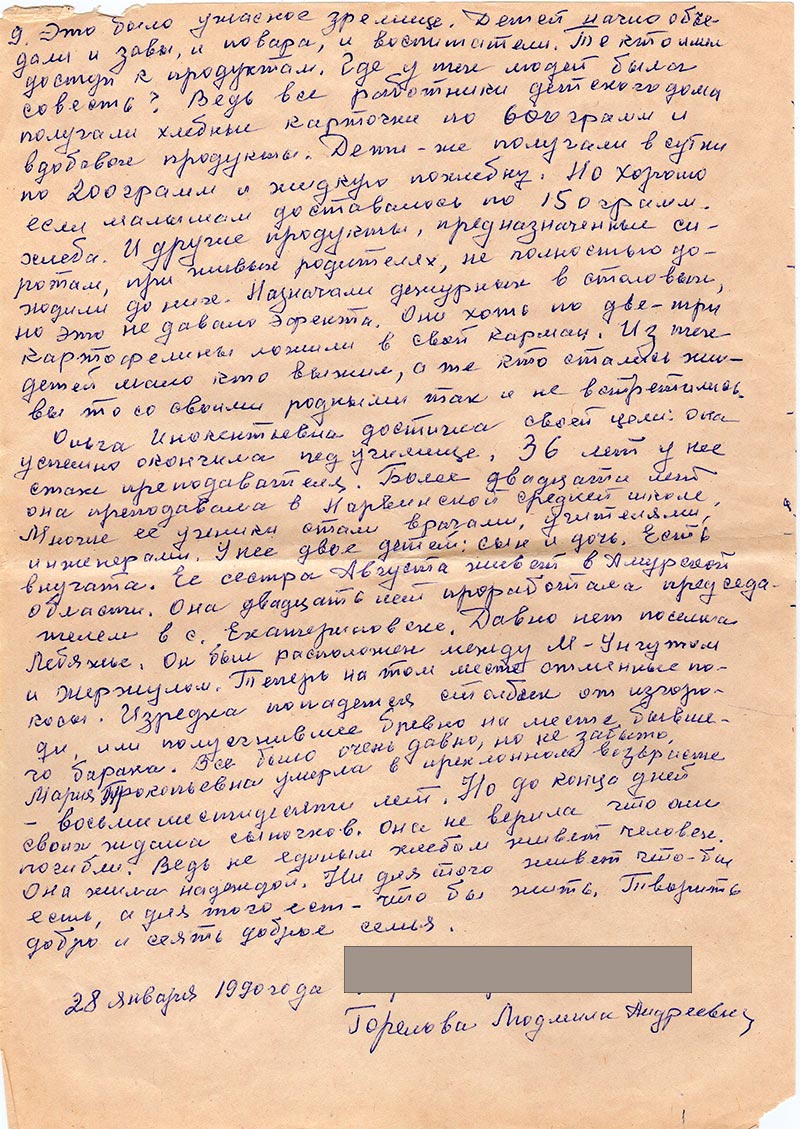 9. Это было ужасное зрелище. Детей начно объе-
дали и завы, и повара, и воспитатели. Те кто имел
доступ к продуктам. Где у тех людей была
совесть? Ведь все работники детского дома
получали хлебные карточки по 600 грамм и
вдобавок продукты. Дети-же получали в сутки
по 200 грамм и жидкую похлебку. Но хорошо
если малышам доставалось по 150 грамм.
хлеба. И другие продукты, предназначенные си-
ротам, при живых родителях, не полностью до-
ходили до них. Назначали дежурных в столовых,
но это не давало эфекта. Они хоть по две-три
картофелины ложили в свой карман. Из тех
детей мало кто выжил, а те кто остались жи-
вы то со своими родными так и не встретились.
Ольга Инокентьевна достигла своей цели: она
успешно окончила педучилище. 36 лет у нее
стаж преподавателя. Более двадцати лет
она преподавала в Нарвинской средней школе.
Многие ее ученики стали врачами, учителями,
инженерами. У нее двое детей: сын и дочь. Есть
внучата. Ее сестра Августа живет в Амурской
области. Она двадцать лет проработала председа-
телем в с. Екатериновске. Давно нет поселка
Лебяжье. Он был расположен между М-Унгутом
и Жержулом. Теперь на том месте отменные по-
косы. Изредка попадется столбик от изгоро-
ди, или полусгнившее бревно на месте бывше-
го барака. Все было очень давно, но не забыто.
Мария Прокопьевна умерла в преклонном возрасте
- восьмидесяти лет. Но до конца дней
своих ждала сыночков. Она не верила что они
погибли. Ведь не единым хлебом живет человек.
Она жила надеждой. Ни для того живет что-бы
есть, а для того ест - что бы жить. Творить
добро и сеять доброе семья.
28 января 1990 года
Горелова Людмила Андреевна